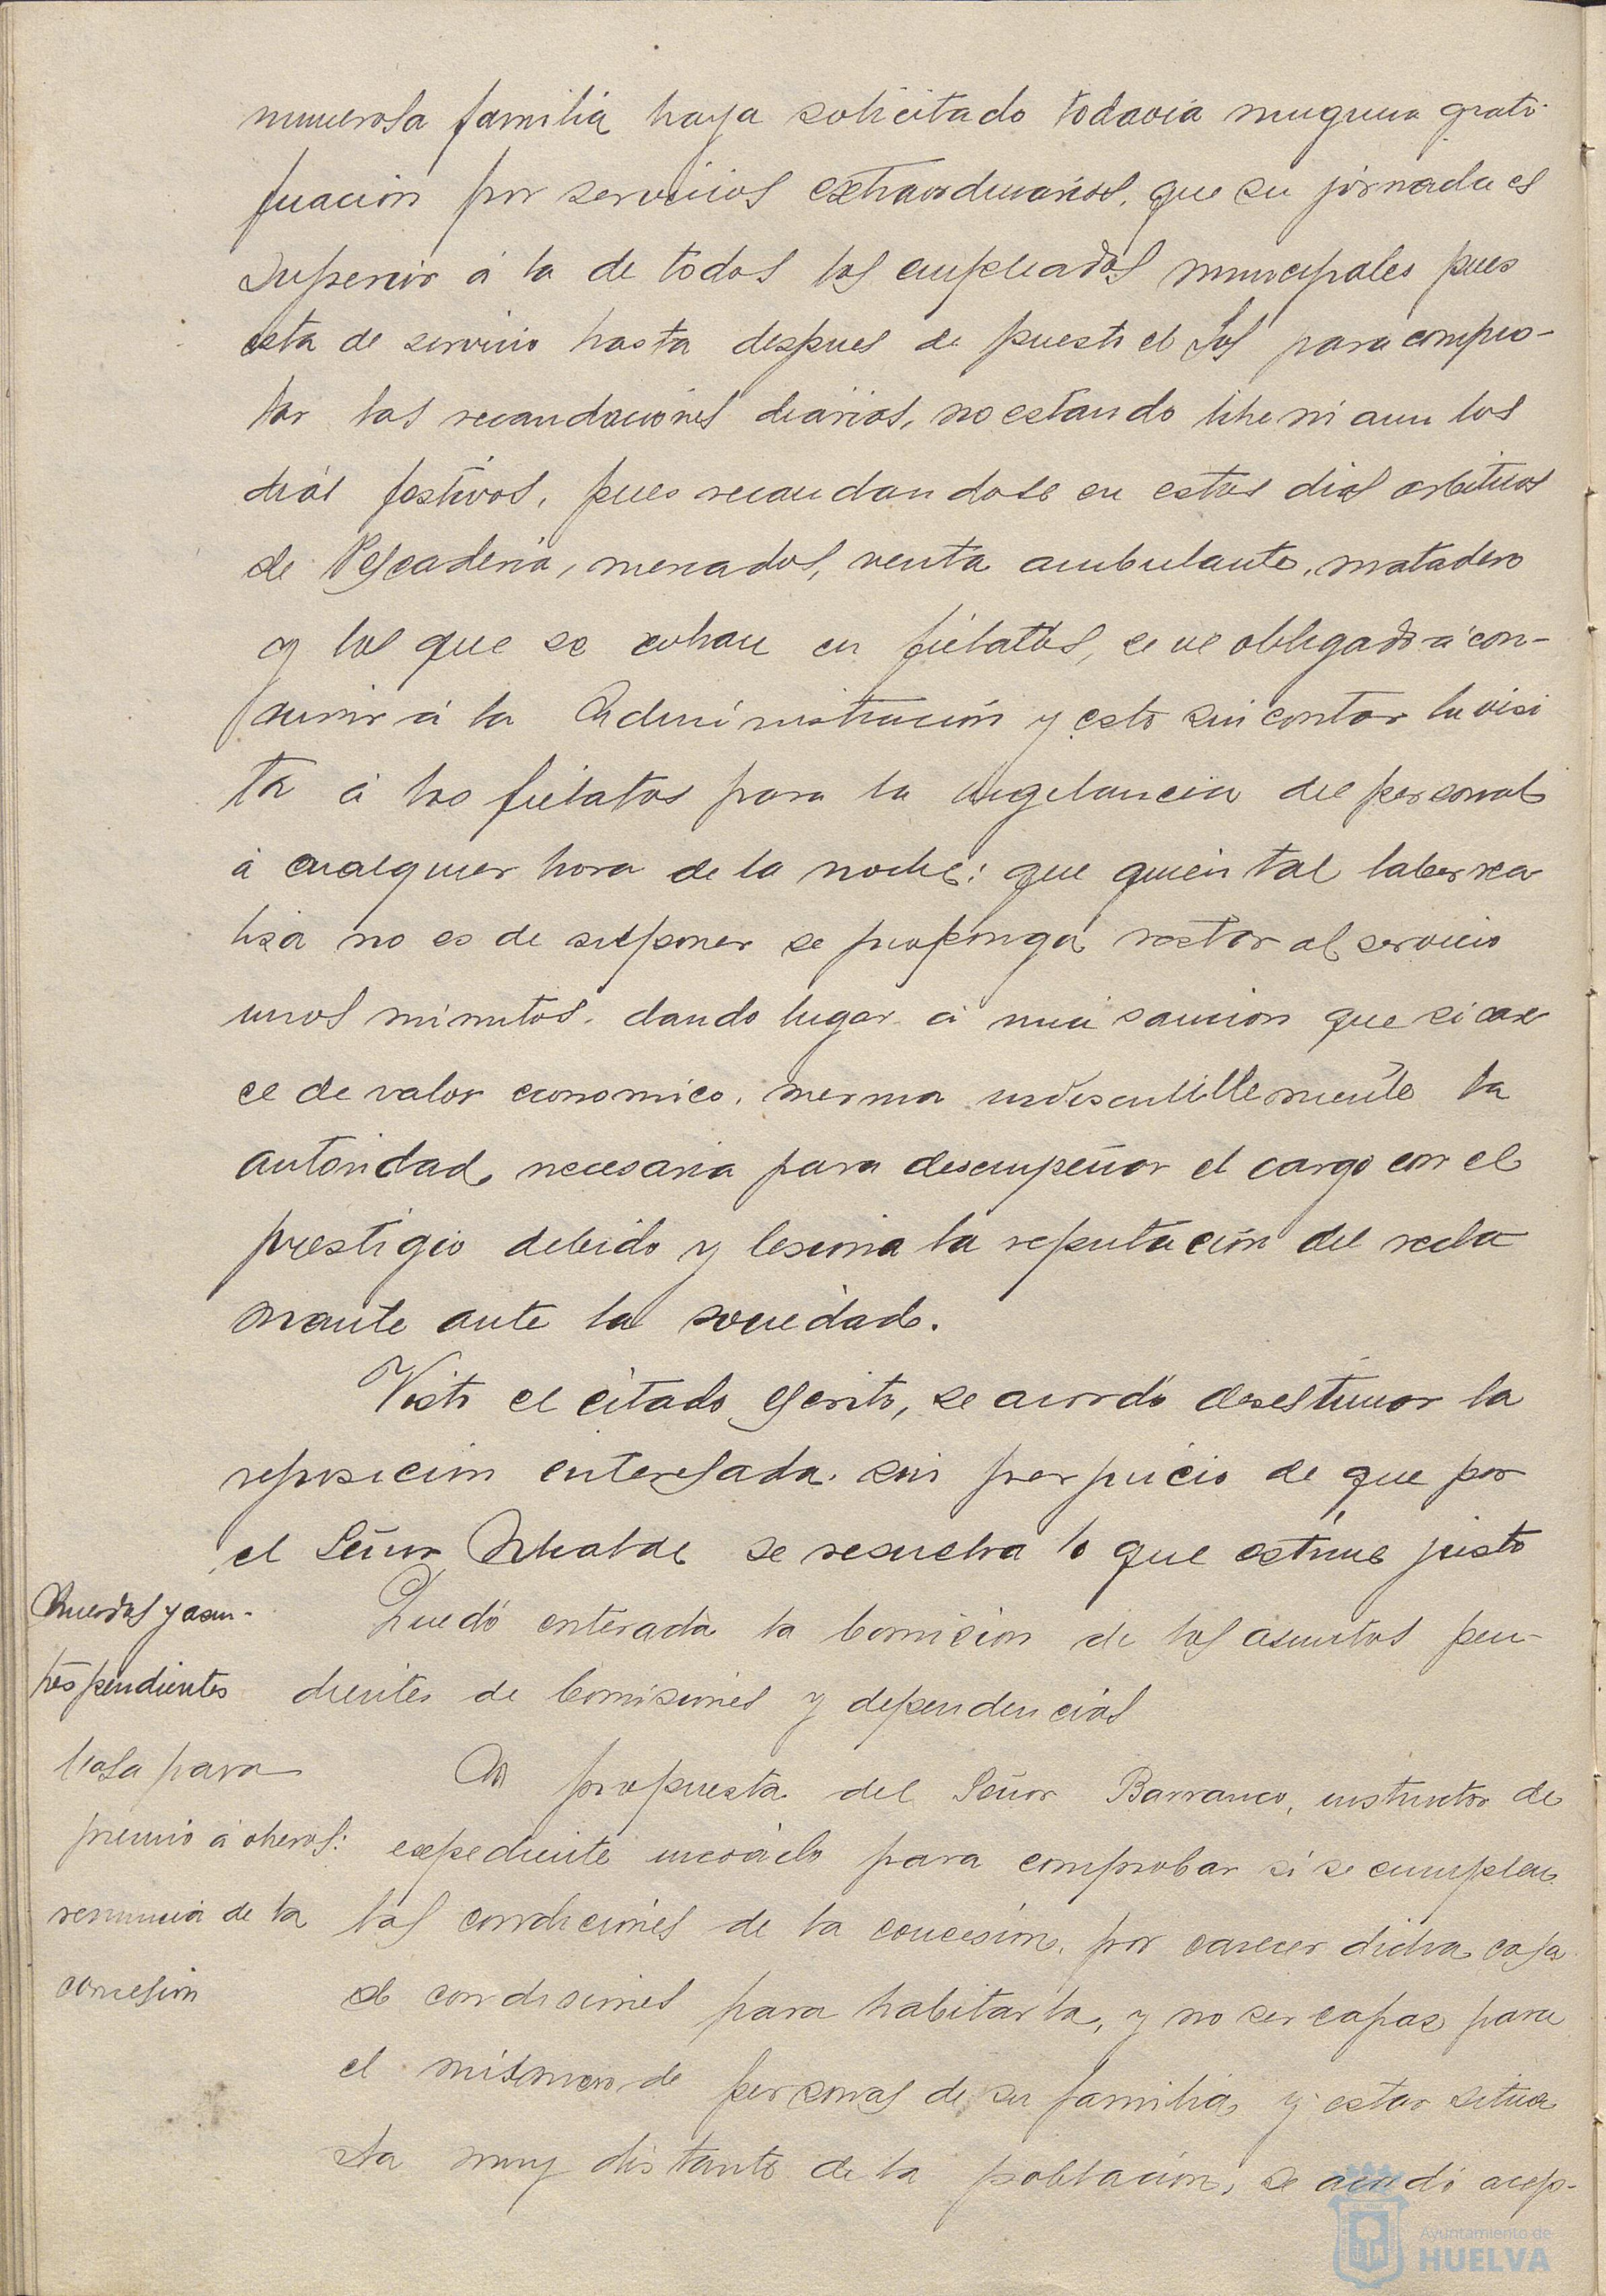 numerosa familia haya solicitado todavia ninguna grati-
ficación por servicios extraordinarios, que su jornada es
superior á la de todos los empleados municipales pues
esta de servicio hasta despues de puesto el Sol para comple-
tar las recaudaciones diarias, no estando libre ni aun los
dias festivos, pues recaudandose en estos dias arbitrios
de Pescaderia, mercados, venta ambulante, matadero
y los que se cobran en fielatos, se ve obligado á con-
currir á la Administración y esto sin contar la visi
ta á los fielatos para la vigilancia del personal
á cualquier hora de la noche: que quien tal labor rea
lisa no es de suponer se proponga restar al servicio
unos minutos dando lugar á una sancion que si care
ce de valor economico, merma indiscutiblemente la
autoridad necesaria para desempeñar el cargo con el
prestigio debido y lesiona la reputación del recla
mante ante la sociedad.
Visto el citado escrito, se acordó desestimar la
reposicion interesada sin perjuicio de que por
el Señor Alcalde se resuelva lo que estime justo
Acuerdos y asun-
tos pendientes
Quedó enterada la Comision de los asuntos pen-
dientes de Comisiones y dependencias
Casa para
premio á obreros:
renuncia de la
concesion
A propuesta del Señor Barranco, instructor de
expediente incoado para comprobar si se cumplen
las condiciones de la concesion, por carecer dicha casa
de condiciones para habitarla, y no ser capas para
el numero de personas de su familia y estar situa
da muy distante de la poblacion, se acordó acep-
Ayuntamiento de
HUELVA